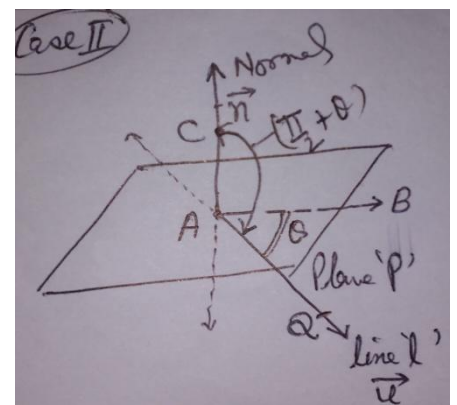 Case II
Normal
n
C
(π/2 + θ)
A
B
θ
Plane 'P'
Q
line 'l'
u